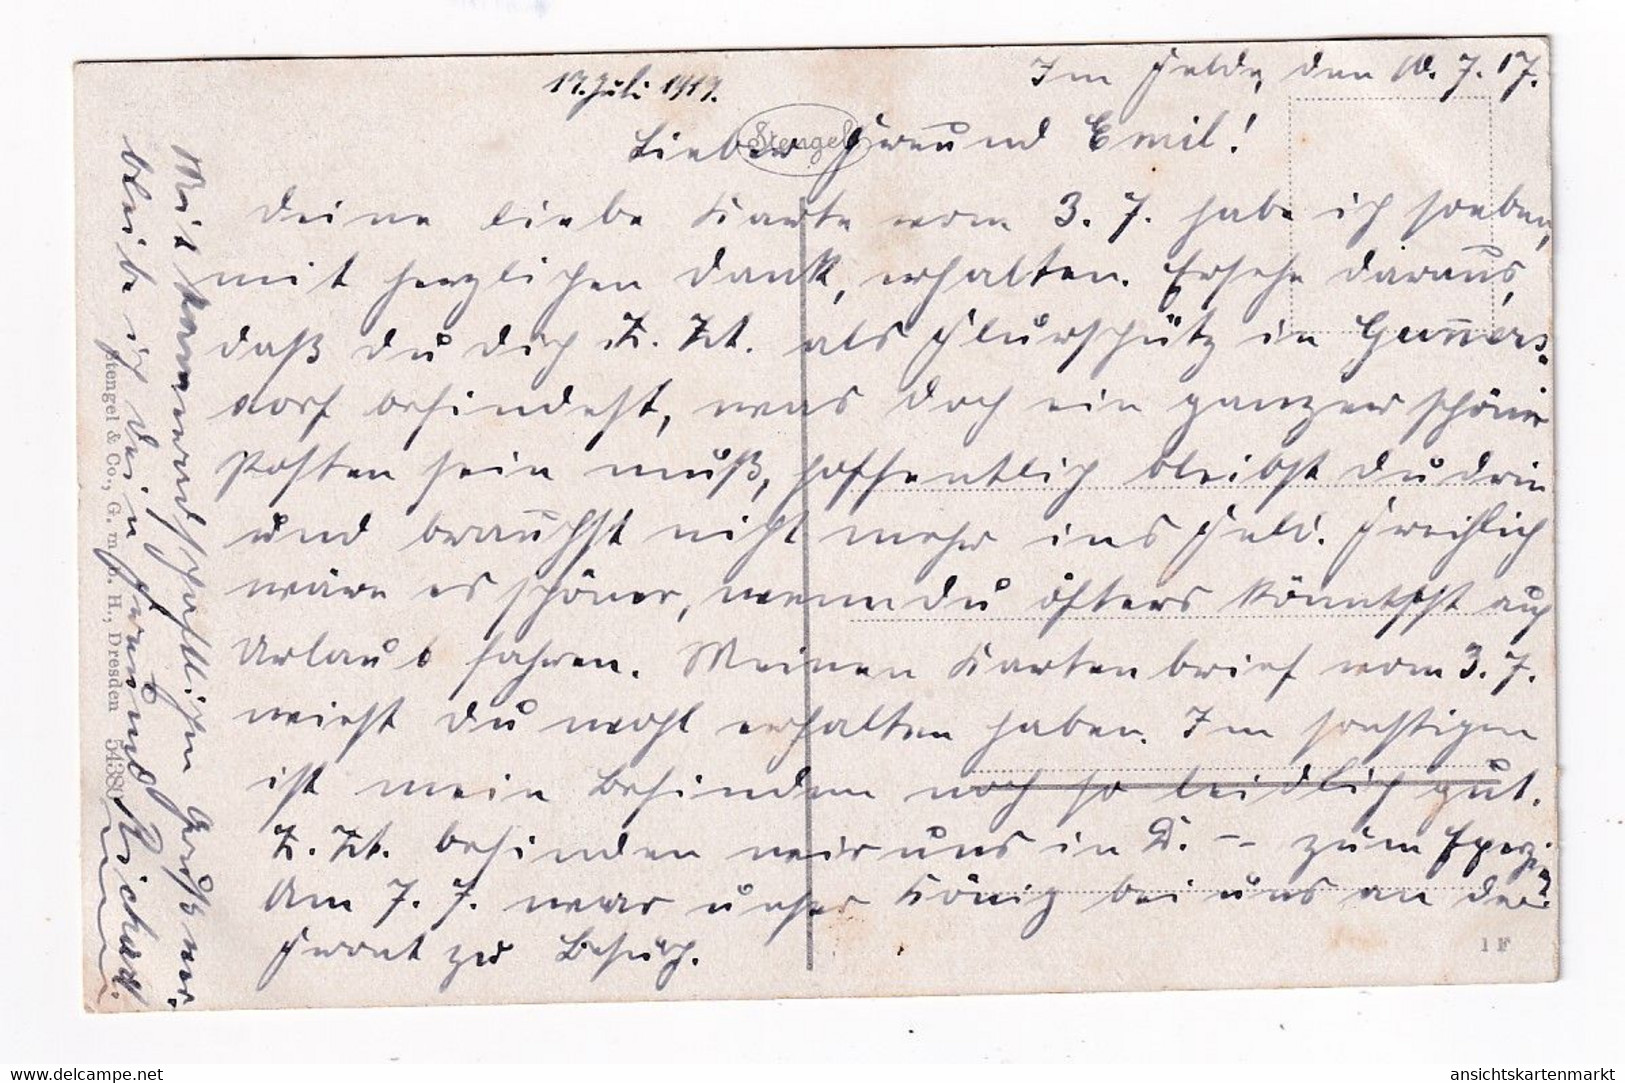 17. Juli 1917.
Im Felde, den 10. 7. 17.
Stengel
Lieber Freund Emil!
Deine liebe Karte vom 3. 7. habe ich soeben,
mit herzlichen Dank, erhalten. Ersehe daraus,
daß du dich z. Zt. als Flurschütz in Gunners-
dorf befindest, was doch ein ganzer schöner
Posten sein muß, hoffentlich bleibst du drin
und brauchst nicht mehr ins Feld. Freihlich
wäre es schöner, wenn du öfters könntest auf
Urlaub fahren. Meinen Kartenbrief vom 3. 7.
wirst du wohl erhalten haben. Im sonstigen
ist mein Befinden noch so leidlich gut.
Z. Zt. befinden wir uns in D. -- zum Exerzi.
Am 7. 7. war unser König bei uns an der
Front zu Besuch.
Mit kameradschaftlichen Gruß ver-
bleibe ich dein Freund Richard.
Stengel & Co., G. m. b. H., Dresden 54380
1 F
© delcampe.net
ansichtskartenmarkt